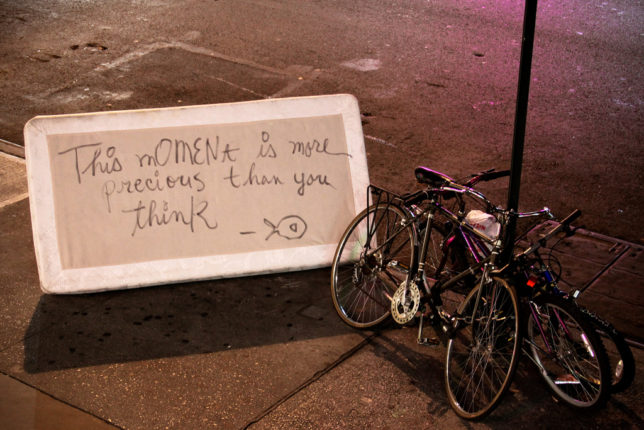 This mOMENt is more
precious than you
think